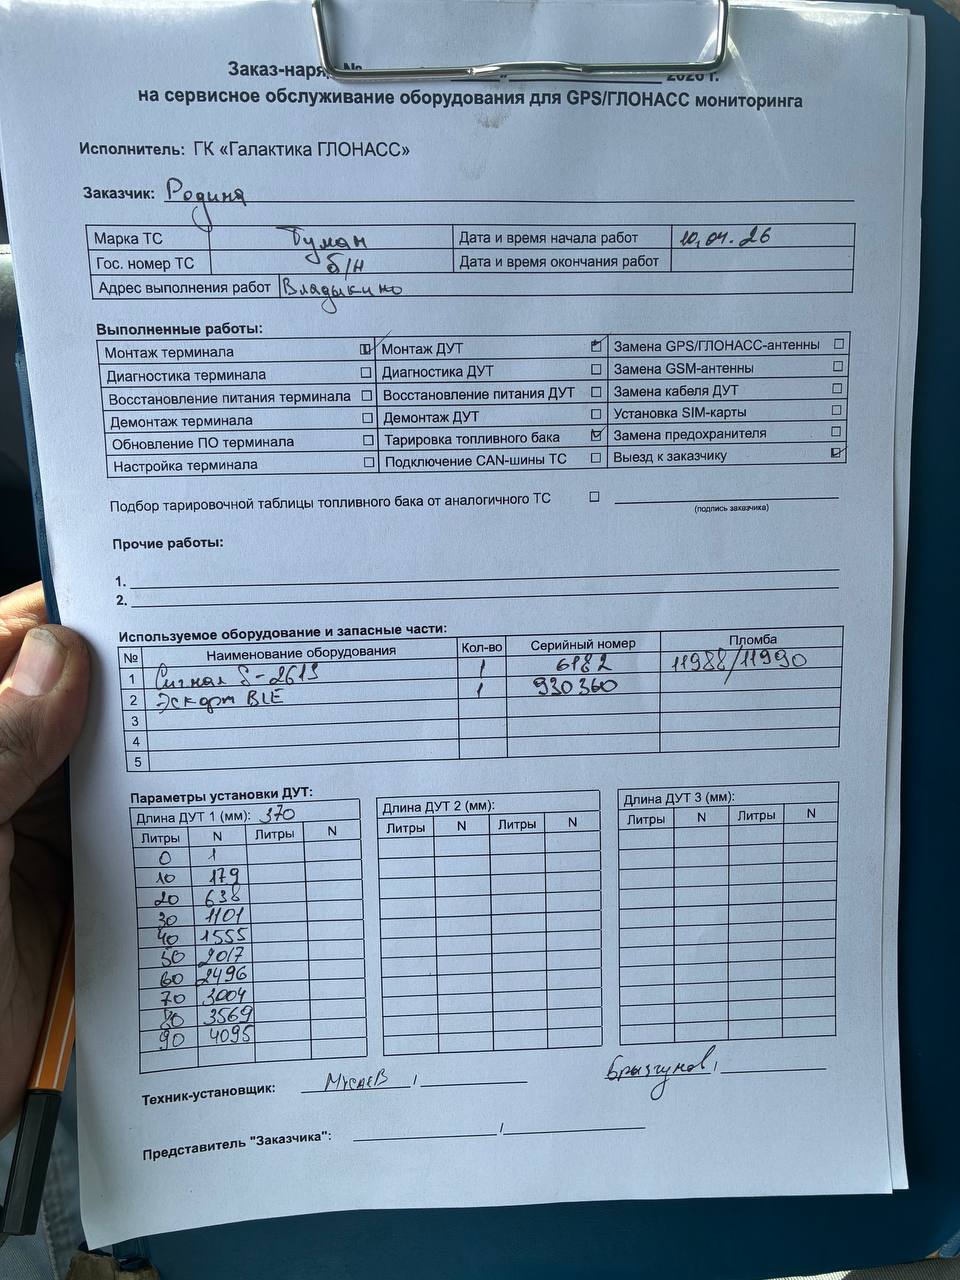 Заказ-наряд № 2026 г.
на сервисное обслуживание оборудования для GPS/ГЛОНАСС мониторинга
Исполнитель: ГК «Галактика ГЛОНАСС»
Заказчик: Родина
Марка ТС Туман Дата и время начала работ 10.04.26
Гос. номер ТС б/н Дата и время окончания работ
Адрес выполнения работ Владыкино
Выполненные работы:
Монтаж терминала Монтаж ДУТ Замена GPS/ГЛОНАСС-антенны
Диагностика терминала Диагностика ДУТ Замена GSM-антенны
Восстановление питания терминала Восстановление питания ДУТ Замена кабеля ДУТ
Демонтаж терминала Демонтаж ДУТ Установка SIM-карты
Обновление ПО терминала Тарировка топливного бака Замена предохранителя
Настройка терминала Подключение CAN-шины ТС Выезд к заказчику
Подбор тарировочной таблицы топливного бака от аналогичного ТС
(подпись заказчика)
Прочие работы:
1.
2.
Используемое оборудование и запасные части:
№ Наименование оборудования Кол-во Серийный номер Пломба
1 Сигнал S-2613 1 6182 11988/11990
2 Эскорт BLE 1 930360
3
4
5
Параметры установки ДУТ:
Длина ДУТ 1 (мм): 370 Длина ДУТ 2 (мм): Длина ДУТ 3 (мм):
Литры N Литры N Литры N Литры N Литры N Литры N
0 1
10 179
20 638
30 1101
40 1555
50 2017
60 2496
70 3004
80 3569
90 4095
Техник-установщик: Мусаев / Брызгунов /
Представитель "Заказчика": /